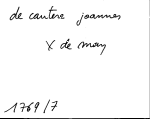 de cantere joannes
X de may
1769/7